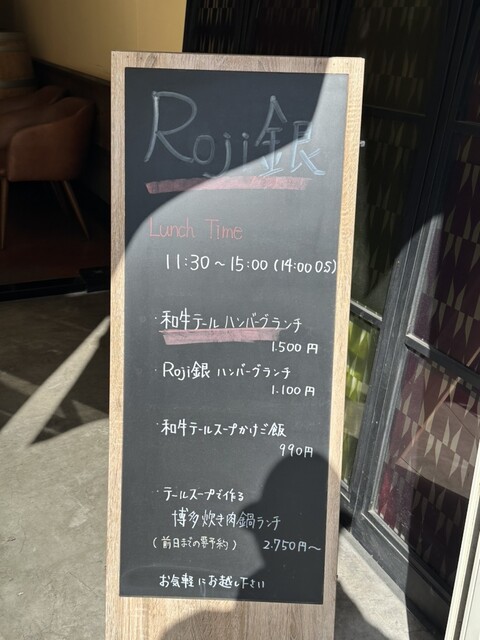 Roji銀
Lunch Time
11:30~15:00(14:00OS)
・和牛テールハンバーグランチ
1.500円
・Roji銀 ハンバーグランチ
1.100円
・和牛テールスープかけご飯
990円
・テールスープで作る
博多炊き肉鍋ランチ
(前日までの要予約) 2.750円~
お気軽にお越し下さい